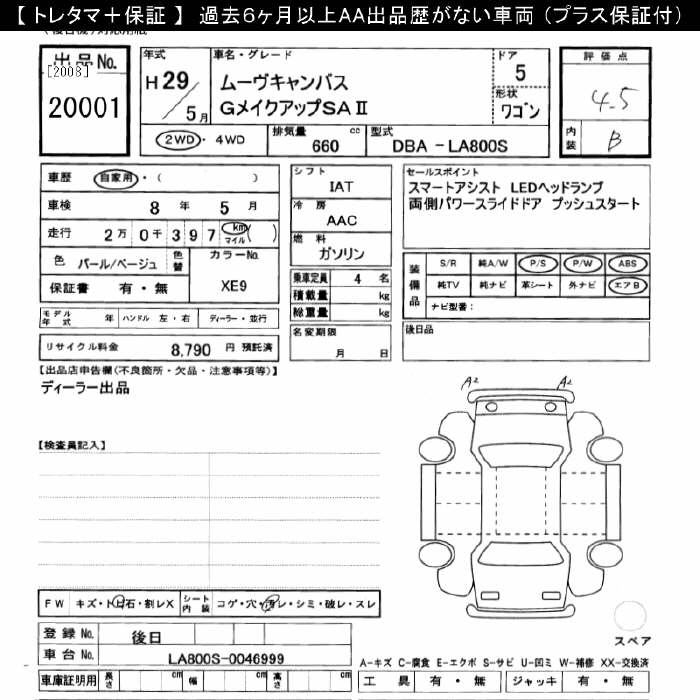 【 トレタマ＋保証 】 過去6ヶ月以上AA出品歴がない車両 (プラス保証付)
出品 No.
[2008]
20001
年式
H 29
/ 5 月
車名・グレード
ムーヴキャンバス
GメイクアップSA II
ドア
5
形状
ワゴン
評価点
4.5
内装
B
2WD ・ 4WD
排気量
660 cc
型式
DBA - LA800S
車歴 自家用 ・ ( )
車検 8 年 5 月
走行 2 万 0 千 3 9 7 km マイル ( )
色 パール/ベージュ
色替
カラーNo.
XE9
保証書 有 ・ 無
シフト
IAT
冷房
AAC
燃料
ガソリン
乗車定員 4 名
積載量 kg
総重量 kg
名変期限
月 日
セールスポイント
スマートアシスト LEDヘッドランプ
両側パワースライドドア プッシュスタート
装備品
S/R 純A/W P/S P/W ABS
純TV 純ナビ 革シート 外ナビ エアB
ナビ型番：
後日品
モデル年式 年 ハンドル 左・右 ディーラー・並行
リサイクル料金 8,790 円 預託済
【出品店申告欄(不良箇所・欠品・注意事項等)】
ディーラー出品
A2 A2
【検査員記入】
FW キズ・トビ石・割レX シート内装 コゲ・穴・汚レ・シミ・破レ・スレ
登録 No. 後日
車台 No. LA800S-0046999
車庫証明用 長さ cm 幅 cm 高さ cm
スペア
A-キズ C-腐食 E-エクボ S-サビ U-凹ミ W-補修 XX-交換済
工具 有 ・ 無 ジャッキ 有 ・ 無